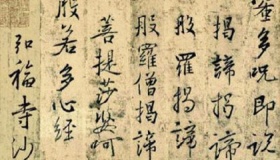 蜜多呪即說
揭諦揭諦
般羅揭諦
般羅僧揭諦
菩提莎婆呵
般若多心經
弘福寺沙